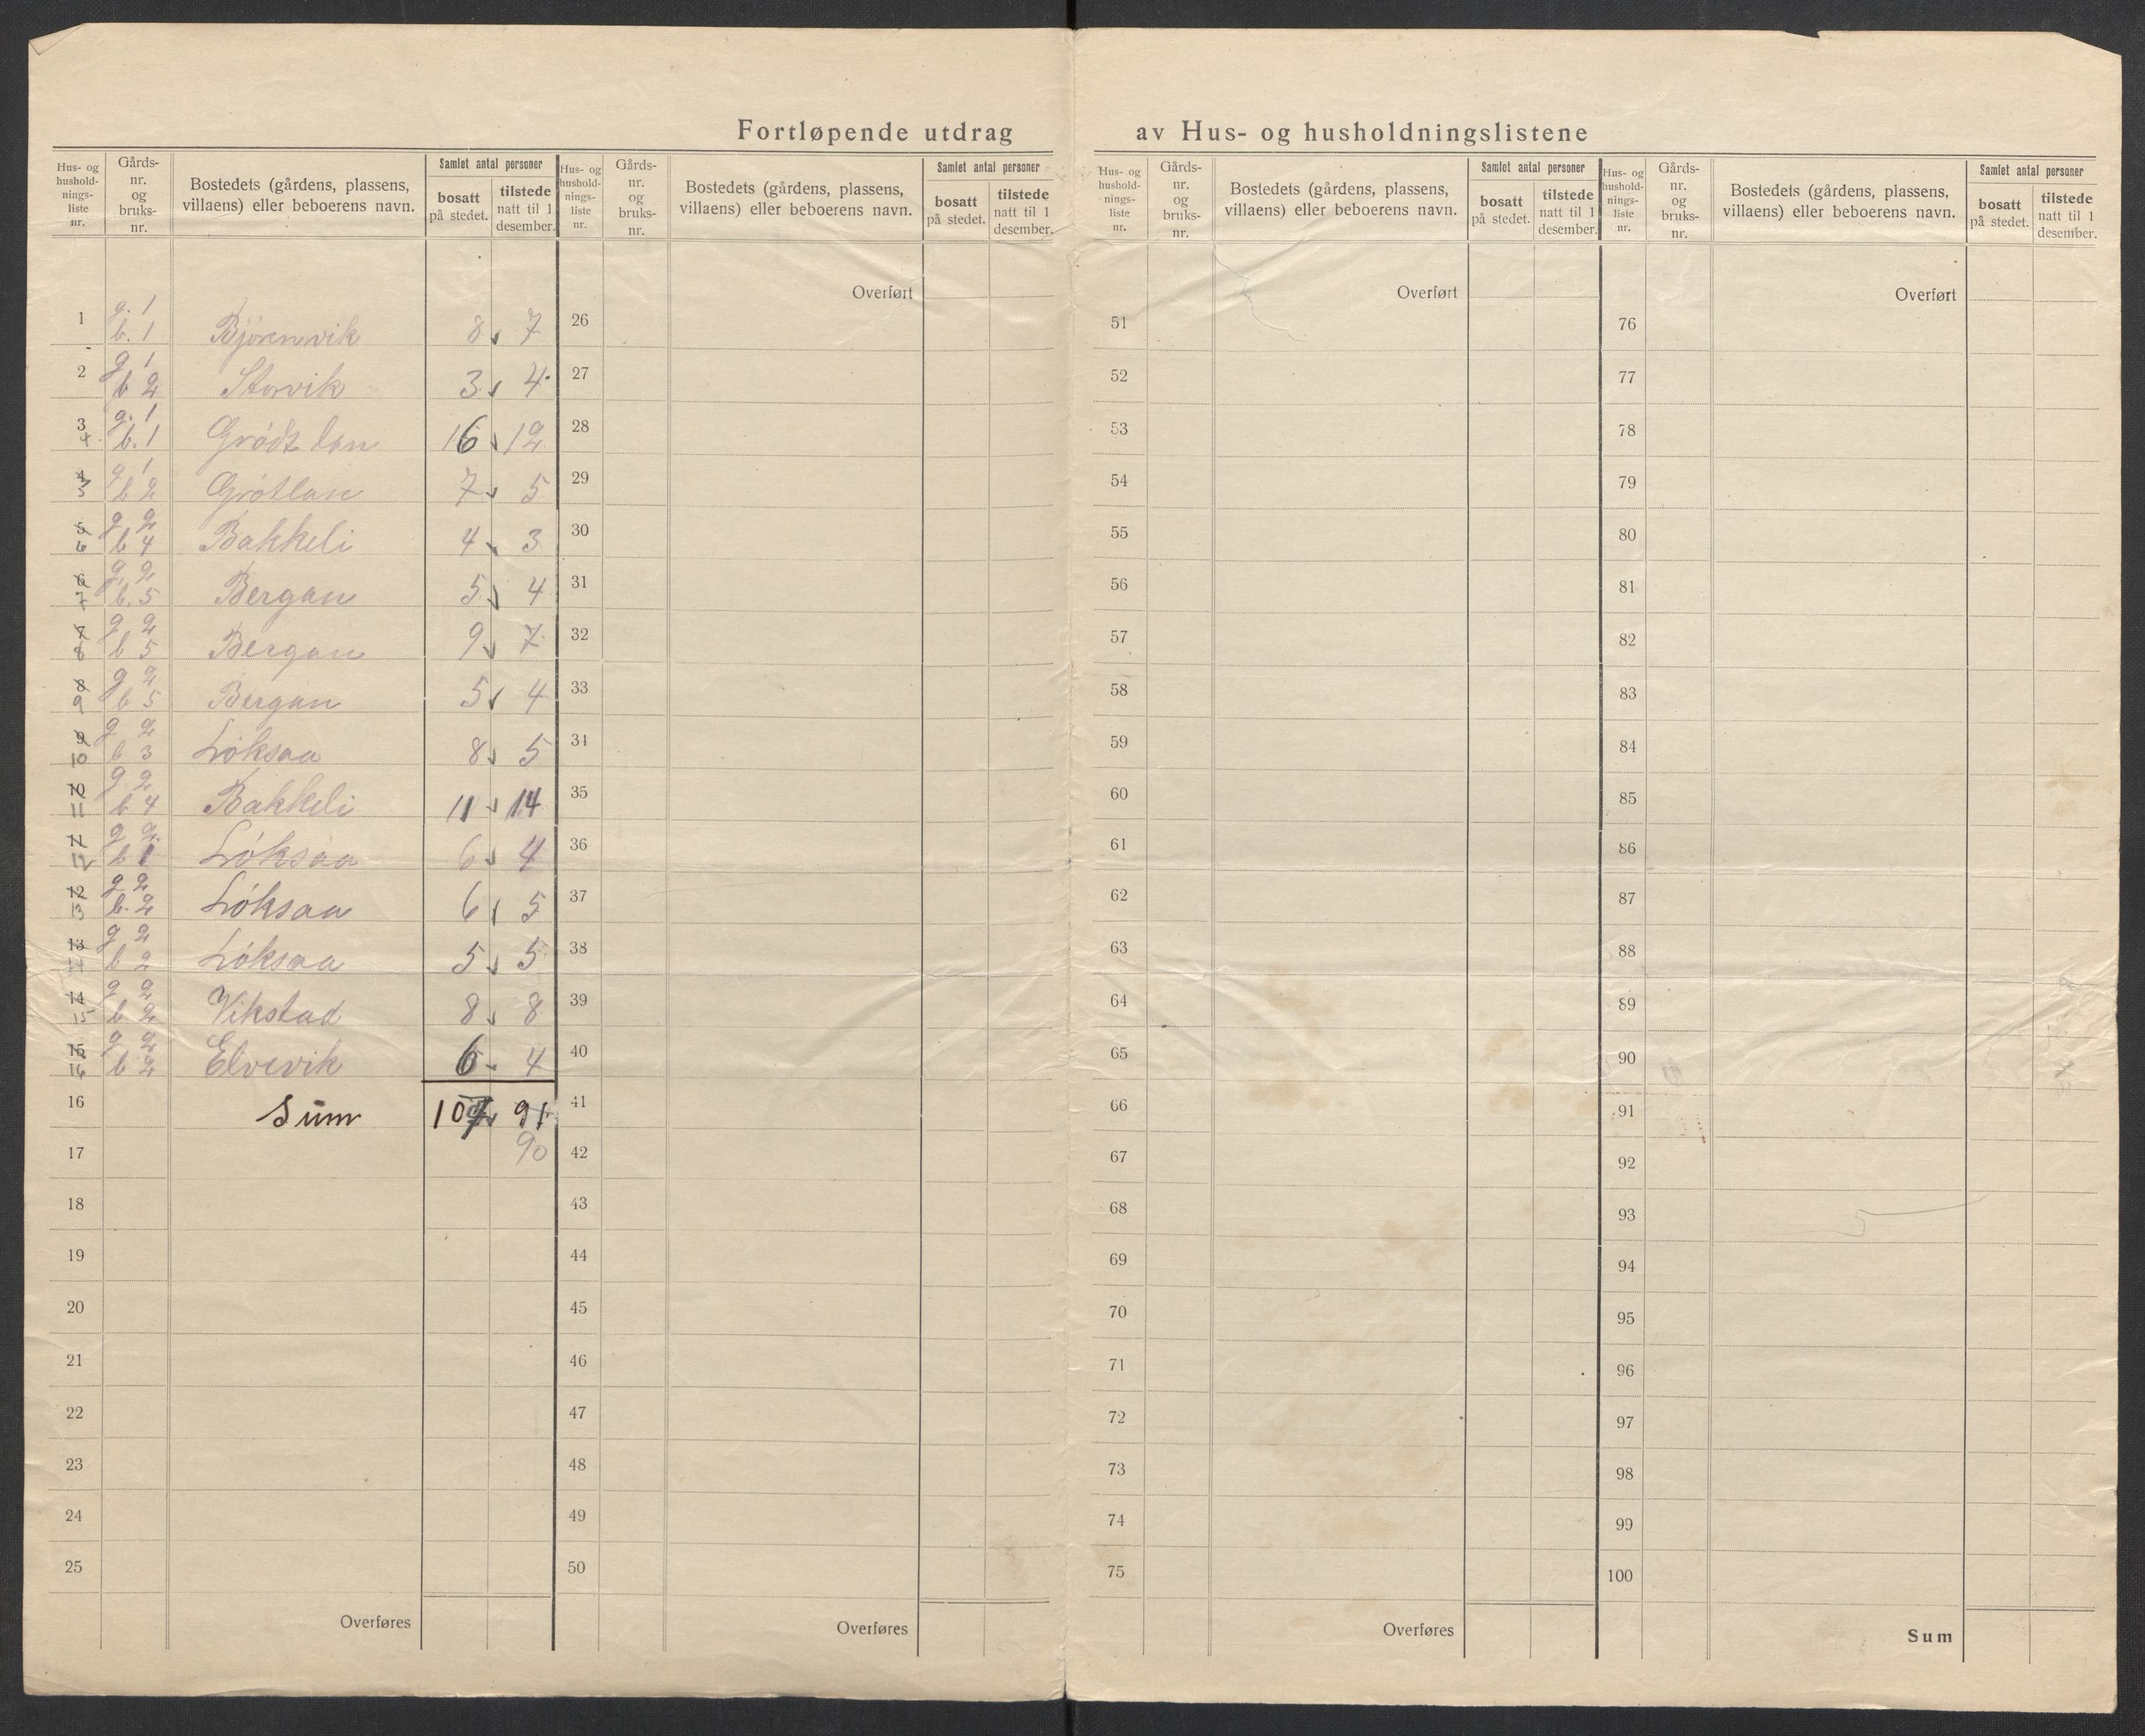 Fortløpende utdrag av Hus- og husholdningslistene
Hus- og hushold-nings-liste nr. Gårds-nr. og bruks-nr. Bostedets (gårdens, plassens, villaens) eller beboerens navn. Samlet antal personer bosatt på stedet. tilstede natt til 1 desember.
1 g. 1 b. 1 Bjørenvik 8 7
2 g 1 b 2 Storvik 3 4
3 4 g. 1 b. 1 Grødtlan 16 12
4 5 g 1 b 2 Grøtlan 7 5
5 6 g 2 b 4 Bakkeli 4 3
6 7 g. 2 b. 5 Bergan 5 4
7 8 g 2 b 5 Bergan 9 7
8 9 g 2 b 5 Bergan 5 4
9 10 g 2 b 3 Løksaa 8 5
10 11 g. 2 b 4 Bakkeli 11 14
11 12 g 2 b 1 Løksaa 6 4
12 13 g 2 b. 2 Løksaa 6 5
13 14 g 2 b 2 Løksaa 5 5
14 15 g 2 b 2 Vikstad 8 8
15 16 g 2 b 2 Elvevik 6 4
16 Sum 107 91
17 90
18
19
20
21
22
23
24
25
Overføres
Hus- og hushold-nings-liste nr. Gårds-nr. og bruks-nr. Bostedets (gårdens, plassens, villaens) eller beboerens navn. Samlet antal personer bosatt på stedet. tilstede natt til 1 desember.
Overført
26
27
28
29
30
31
32
33
34
35
36
37
38
39
40
41
42
43
44
45
46
47
48
49
50
Overføres
Hus- og hushold-nings-liste nr. Gårds-nr. og bruks-nr. Bostedets (gårdens, plassens, villaens) eller beboerens navn. Samlet antal personer bosatt på stedet. tilstede natt til 1 desember.
Overført
51
52
53
54
55
56
57
58
59
60
61
62
63
64
65
66
67
68
69
70
71
72
73
74
75
Overføres
Hus- og hushold-nings-liste nr. Gårds-nr. og bruks-nr. Bostedets (gårdens, plassens, villaens) eller beboerens navn. Samlet antal personer bosatt på stedet. tilstede natt til 1 desember.
Overført
76
77
78
79
80
81
82
83
84
85
86
87
88
89
90
91
92
93
94
95
96
97
98
99
100
Sum